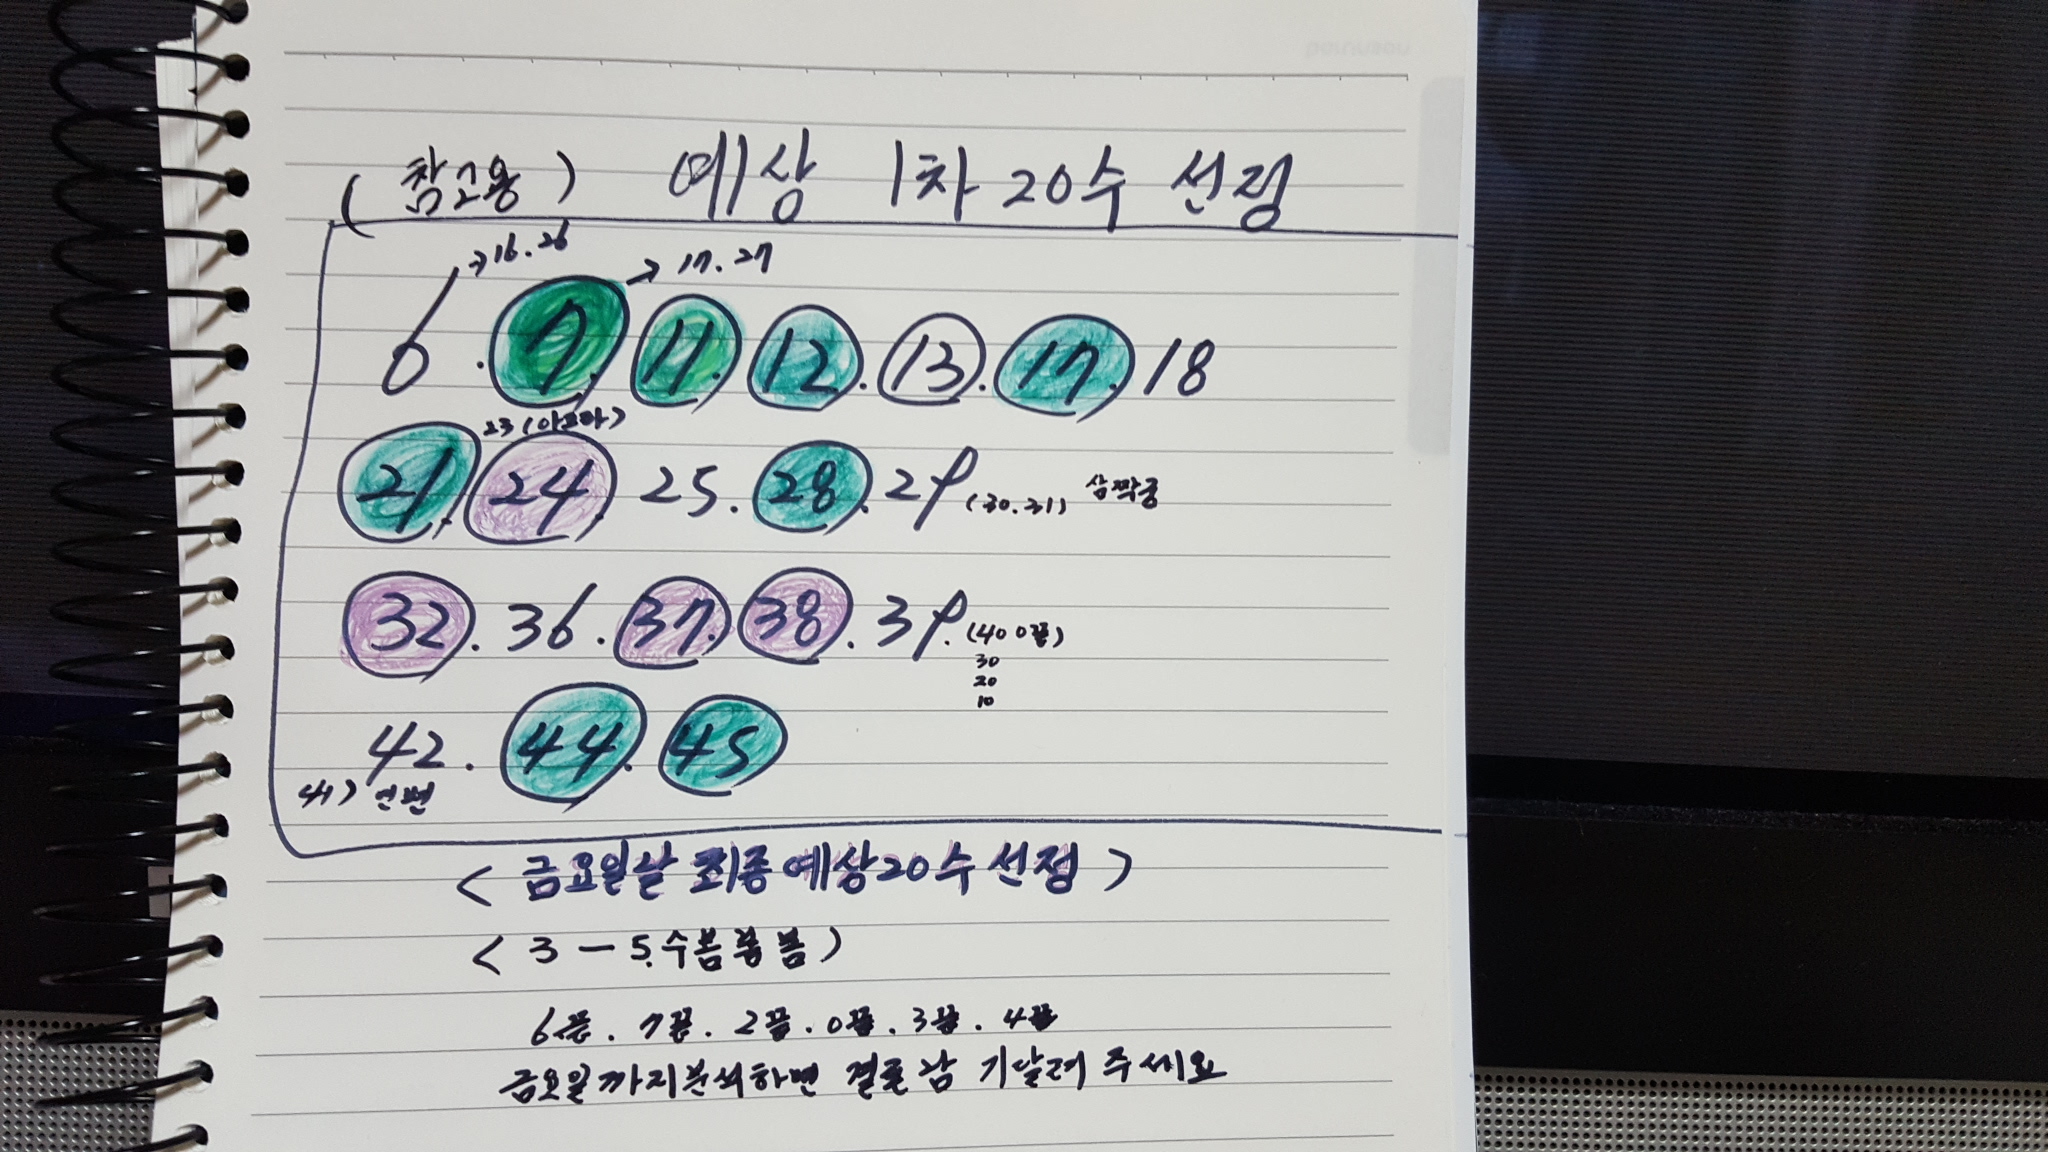 (참고용) 예상 1차 20수 선정
→16.26 →17.27
6.7.11.12.13.17.18
23(아프다)
21.24.25.28.29(30.31) 삼짝궁
32.36.37.38.39.(40 0끝)
30
20
10
42.44.45
41>
<금요일날 최종예상20수선정>
<3-5.수봄봄봄>
6끝.7끝.2끝.0끝.3끝.4끝
금요일까지분석하면 결론남 기달려주세요